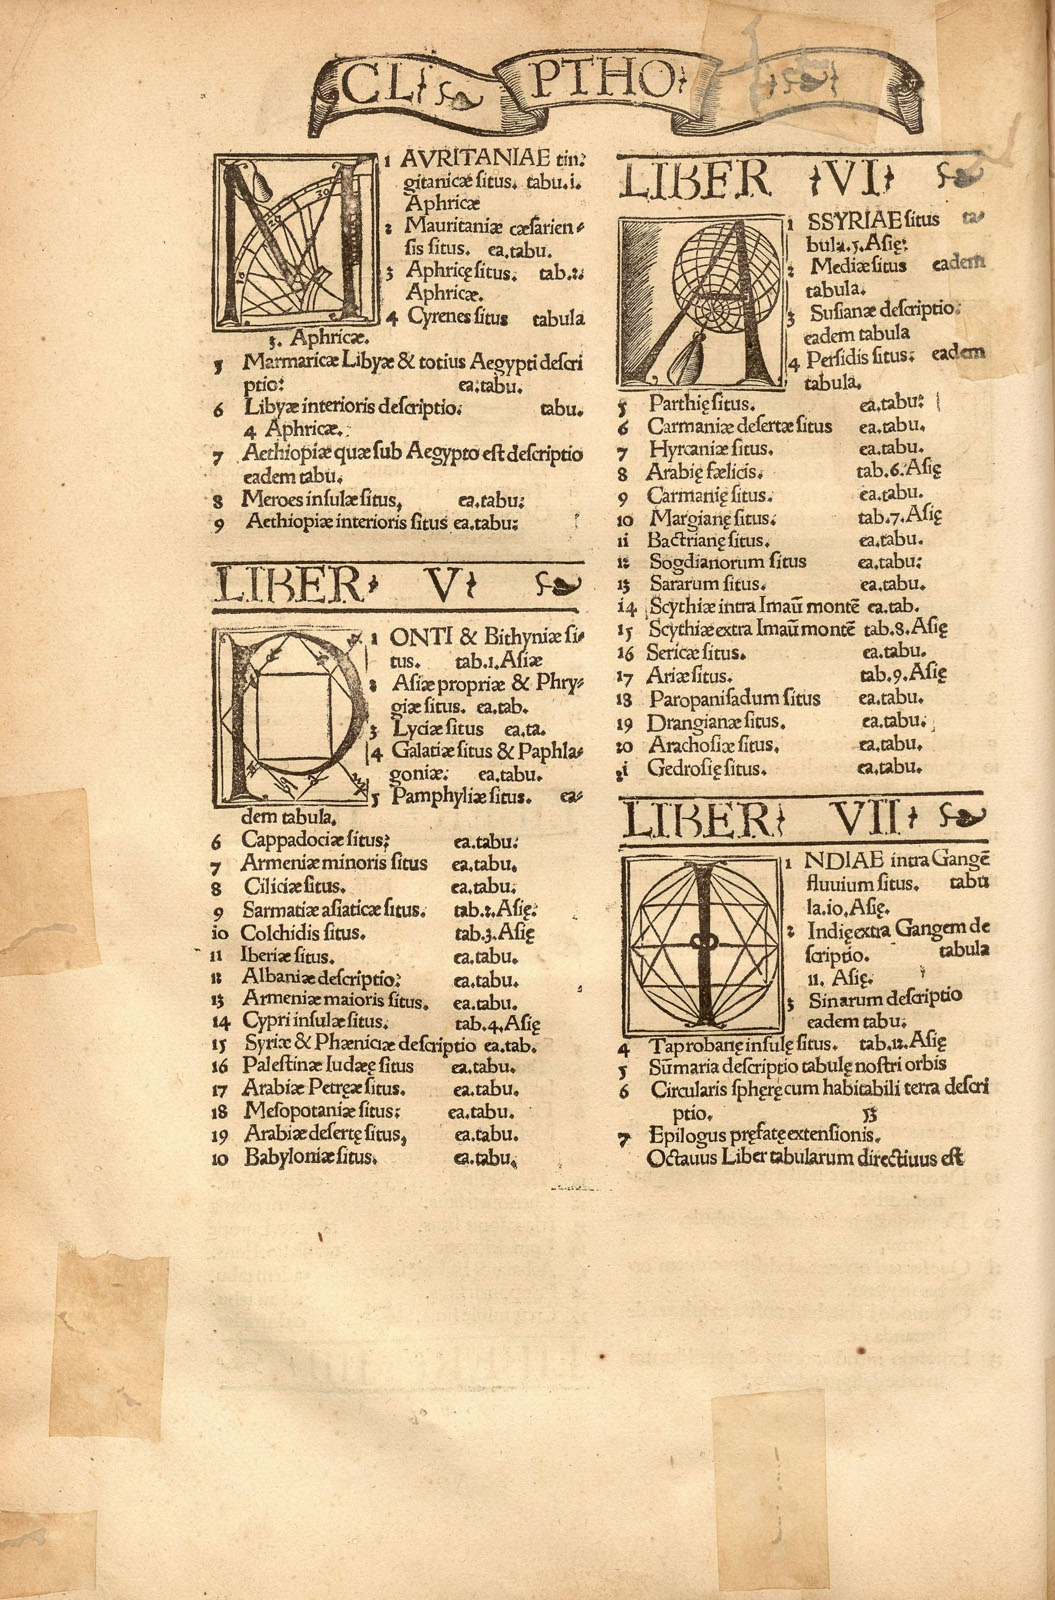 CL PTHO
1 MAVRITANIAE tin:
gitanicæ situs. tabu.i.
Aphricæ
2 Mauritaniæ cæsarien⸗
sis situs. ea.tabu.
3 Aphricę situs. tab.2.
Aphricæ.
4 Cyrenes situs tabula
3. Aphricæ.
5 Marmaricæ Libyæ & totius Aegypti descri
ptio: ea.tabu.
6 Libyæ interioris descriptio. tabu.
4 Aphricæ.
7 Aethiopiæ quæ sub Aegypto est descriptio
eadem tabu.
8 Meroes insulæ situs, ea.tabu:
9 Aethiopiæ interioris situs ea.tabu:
LIBER V
1 PONTI & Bithyniæ si⸗
tus. tab.1.Asiæ
2 Asiæ propriæ & Phry⸗
giæ situs. ea.tab.
3 Lyciæ situs ea.ta.
4 Galatiæ situs & Paphla⸗
goniæ: ea.tabu.
5 Pamphyliæ situs. ea⸗
dem tabula.
6 Cappadociæ situs: ea.tabu:
7 Armeniæ minoris situs ea.tabu.
8 Ciliciæ situs. ea.tabu.
9 Sarmatiæ asiaticæ situs. tab.2.Asię.
io Colchidis situs. tab.3.Asię
11 Iberiæ situs. ea.tabu.
12 Albaniæ descriptio: ea.tabu.
13 Armeniæ maioris situs. ea.tabu.
14 Cypri insulæ situs. tab.4.Asię
15 Syriæ & Phæniciæ descriptio ea.tab.
16 Palestinæ Iudæę situs ea.tabu.
17 Arabiæ Petręæ situs. ea.tabu.
18 Mesopotaniæ situs: ea.tabu.
19 Arabiæ desertę situs, ea.tabu.
20 Babyloniæ situs. ea.tabu.
LIBER VI
1 ASSYRIAE situs ta⸗
bula.5.Asię:
2 Mediæ situs eadem
tabula.
3 Susianæ descriptio:
eadem tabula
4 Persidis situs: eadem
tabula.
5 Parthię situs. ea.tabu:
6 Carmaniæ desertæ situs ea.tabu.
7 Hyrcaniæ situs. ea.tabu.
8 Arabię fælicis. tab.6.Asię
9 Carmanię situs. ea.tabu.
10 Margianę situs. tab.7.Asię
ii Bactrianę situs. ea.tabu.
12 Sogdianorum situs ea.tabu:
13 Sararum situs. ea.tabu.
i4 Scythiæ intra Imaū montē ea.tab.
15 Scythiæ extra Imaū montē tab.8.Asię
16 Sericæ situs. ea.tabu.
17 Ariæ situs. tab.9.Asię
18 Paropanisadum situs ea.tabu.
19 Drangianæ situs. ea.tabu.
20 Arachosiæ situs. ea.tabu.
2i Gedrosię situs. ea.tabu.
LIBER VII
1 INDIAE intra Gangē
fluuium situs. tabu
la.io.Asię.
2 Indię extra Gangem de
scriptio. tabula
11. Asię.
3 Sinarum descriptio
eadem tabu.
4 Taprobanę insulę situs. tab.12.Asię
5 Sūmaria descriptio tabulę nostri orbis
6 Circularis sphęrę cum habitabili terra descri
ptio. 53
7 Epilogus pręfatę extensionis.
Octauus Liber tabularum directiuus est